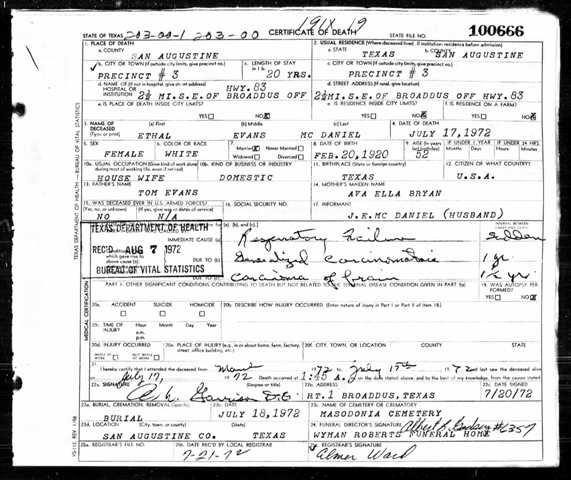 191X 19
STATE OF TEXAS 203-00-1 203-00 CERTIFICATE OF DEATH STATE FILE NO. 100666
1. PLACE OF DEATH 2. USUAL RESIDENCE (Where deceased lived. If institution: residence before admission)
a. COUNTY a. STATE b. COUNTY
SAN AUGUSTINE TEXAS SAN AUGUSTINE
b. CITY OR TOWN (If outside city limits, give precinct no.) c. LENGTH OF STAY c. CITY OR TOWN (If outside city limits, give precinct no.)
PRECINCT # 3 20 YRS. PRECINCT # 3
d. NAME OF (If not in hospital, give street address) d. STREET ADDRESS (If rural, give location)
HOSPITAL OR INSTITUTION 2½ MI. S.E. OF BROADDUS OFF HWY. 83 2½MI.S.E.OF BROADDUS OFF HWY.83
e. IS PLACE OF DEATH INSIDE CITY LIMITS? e. IS RESIDENCE INSIDE CITY LIMITS? f. IS RESIDENCE ON A FARM?
YES NO YES NO YES NO
3. NAME OF DECEASED (Type or print) (a) First (b) Middle (c) Last 4. DATE OF DEATH
ETHAL EVANS MC DANIEL JULY 17,1972
5. SEX 6. COLOR OR RACE 7. Married Never Married Widowed Divorced 8. DATE OF BIRTH 9. AGE IF UNDER 1 YEAR IF UNDER 24 HRS.
FEMALE WHITE FEB.20,1920 52 Months Days Hours Min.
10a. USUAL OCCUPATION (Give kind of work done during most of working life, even if retired) 10b. KIND OF BUSINESS OR INDUSTRY 11. BIRTHPLACE (State or foreign country) 12. CITIZEN OF WHAT COUNTRY?
HOUSE WIFE DOMESTIC TEXAS U.S.A.
13. FATHER'S NAME 14. MOTHER'S MAIDEN NAME
TOM EVANS AVA ELLA BRYAN
15. WAS DECEASED EVER IN U.S. ARMED FORCES? 16. SOCIAL SECURITY NO. 17. INFORMANT
(Yes, no, or unknown) (If yes, give war or dates of service)
NO N/A J.E.MC DANIEL (HUSBAND)
TEXAS DEPARTMENT OF HEALTH
REC'D AUG 7 1972
BUREAU OF VITAL STATISTICS
IMMEDIATE CAUSE (a) Respiratory Failure sudden
DUE TO (b) Generalized carcinomatosis 1 yr
DUE TO (c) Carcinoma of brain 1½ yr.
PART II. OTHER SIGNIFICANT CONDITIONS CONTRIBUTING TO DEATH BUT NOT RELATED TO THE TERMINAL DISEASE CONDITION GIVEN IN PART I(a) 19. WAS AUTOPSY PERFORMED?
YES NO
20a. ACCIDENT SUICIDE HOMICIDE 20b. DESCRIBE HOW INJURY OCCURRED. (Enter nature of injury in Part I or Part II of item 18)
20c. TIME OF INJURY Hour Month Day Year a.m. p.m.
20d. INJURY OCCURRED 20e. PLACE OF INJURY (e.g., in or about home, farm, factory, street, office building, etc.) 20f. CITY, TOWN, OR LOCATION COUNTY STATE
21. I hereby certify that I attended the deceased from 72 to July 17th 72 last saw the deceased alive
July 17, 72 Death occurred at 1:45 a. m. on the date stated above; and to the best of my knowledge, from the causes stated.
22a. SIGNATURE (Degree or title) 22b. ADDRESS 22c. DATE SIGNED
Garrison D.O. RT.1 BROADDUS, TEXAS 7/20/72
23a. BURIAL, CREMATION, REMOVAL (Specify) 23b. DATE 23c. NAME OF CEMETERY OR CREMATORY
BURIAL JULY 18,1972 MASODONIA CEMETERY
23d. LOCATION (City, town, or county) (State) 24. FUNERAL DIRECTOR'S SIGNATURE #6357
SAN AUGUSTINE CO. TEXAS WYMAN ROBERTS FUNERAL HOME
25a. REGISTRAR'S FILE NO. 25b. DATE REC'D BY LOCAL REGISTRAR 25c. REGISTRAR'S SIGNATURE
7-21-72 Elmer Ward
TEXAS DEPARTMENT OF HEALTH — BUREAU OF VITAL STATISTICS
MEDICAL CERTIFICATION